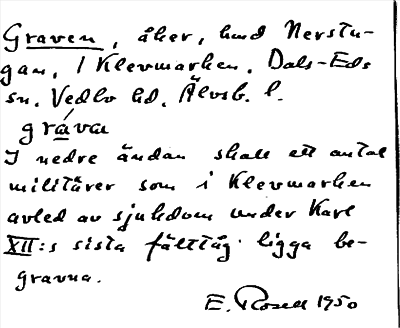 Graven, åker, hmd Nerstu-
gan, 1 Klevmarken, Dals-Eds
sn, Vedbo hd, Älvsb. l.
gráva
I nedre ändan skall ett antal
militärer som i Klevmarken
avled av sjukdom under Karl
XII:s sista fälttåg ligga be-
gravna.
E. Rosell 1950